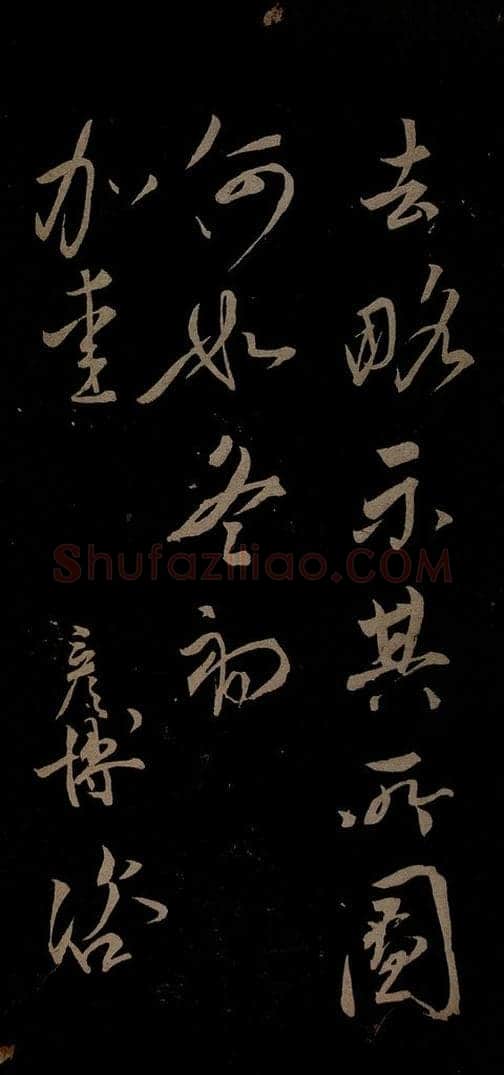 去略示其所圖
何如冬初
加重
彥博咨
Shufaziliao.COM